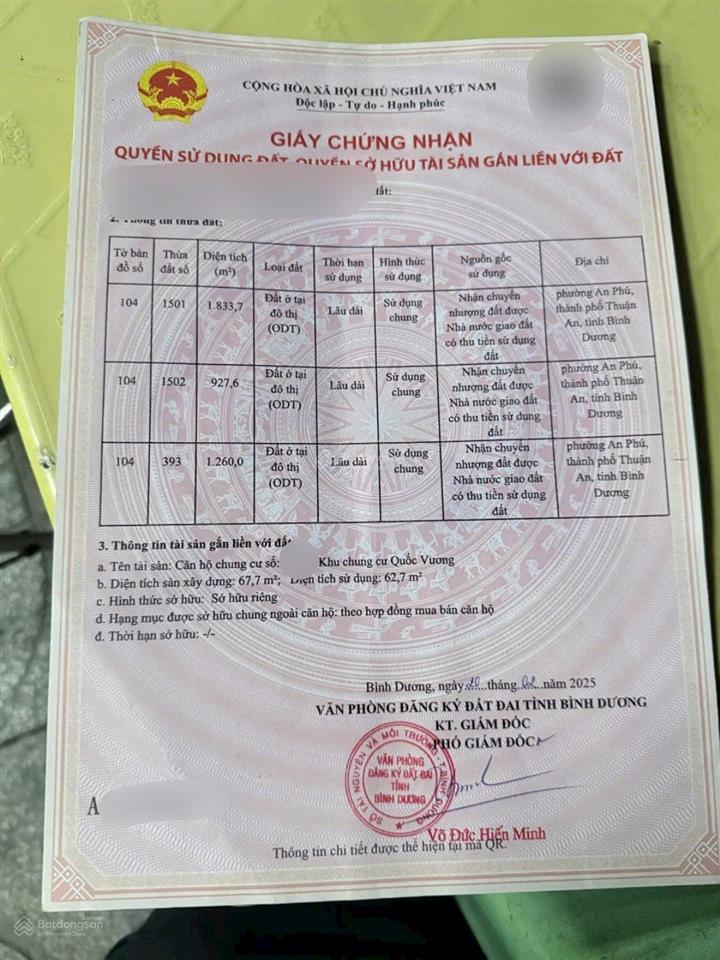 CỘNG HÒA XÃ HỘI CHỦ NGHĨA VIỆT NAM
Độc lập - Tự do - Hạnh phúc
GIẤY CHỨNG NHẬN
QUYỀN SỬ DỤNG ĐẤT, QUYỀN SỞ HỮU TÀI SẢN GẮN LIỀN VỚI ĐẤT
đất:
2. Thông tin thửa đất:
Tờ bản đồ số | Thửa đất số | Diện tích (m²) | Loại đất | Thời hạn sử dụng | Hình thức sử dụng | Nguồn gốc sử dụng | Địa chỉ
104 | 1501 | 1.833,7 | Đất ở tại đô thị (ODT) | Lâu dài | Sử dụng chung | Nhận chuyển nhượng đất được Nhà nước giao đất có thu tiền sử dụng đất | phường An Phú, thành phố Thuận An, tỉnh Bình Dương
104 | 1502 | 927,6 | Đất ở tại đô thị (ODT) | Lâu dài | Sử dụng chung | Nhận chuyển nhượng đất được Nhà nước giao đất có thu tiền sử dụng đất | phường An Phú, thành phố Thuận An, tỉnh Bình Dương
104 | 393 | 1.260,0 | Đất ở tại đô thị (ODT) | Lâu dài | Sử dụng chung | Nhận chuyển nhượng đất được Nhà nước giao đất có thu tiền sử dụng đất | phường An Phú, thành phố Thuận An, tỉnh Bình Dương
3. Thông tin tài sản gắn liền với đất
a. Tên tài sản: Căn hộ chung cư số: Khu chung cư Quốc Vương
b. Diện tích sàn xây dựng: 67,7 m²; Diện tích sử dụng: 62,7 m²
c. Hình thức sở hữu: Sở hữu riêng
d. Hạng mục được sở hữu chung ngoài căn hộ: theo hợp đồng mua bán căn hộ
đ. Thời hạn sở hữu: -/-
Bình Dương, ngày 20 tháng 02 năm 2025
VĂN PHÒNG ĐĂNG KÝ ĐẤT ĐAI TỈNH BÌNH DƯƠNG
KT. GIÁM ĐỐC
PHÓ GIÁM ĐỐC
SỞ TÀI NGUYÊN VÀ MÔI TRƯỜNG - T.BÌNH DƯƠNG
VĂN PHÒNG
ĐĂNG KÝ ĐẤT ĐAI
TỈNH
BÌNH DƯƠNG
A
Võ Đức Hiến Minh
Thông tin chi tiết được thể hiện tại mã QR.
Batdongsan